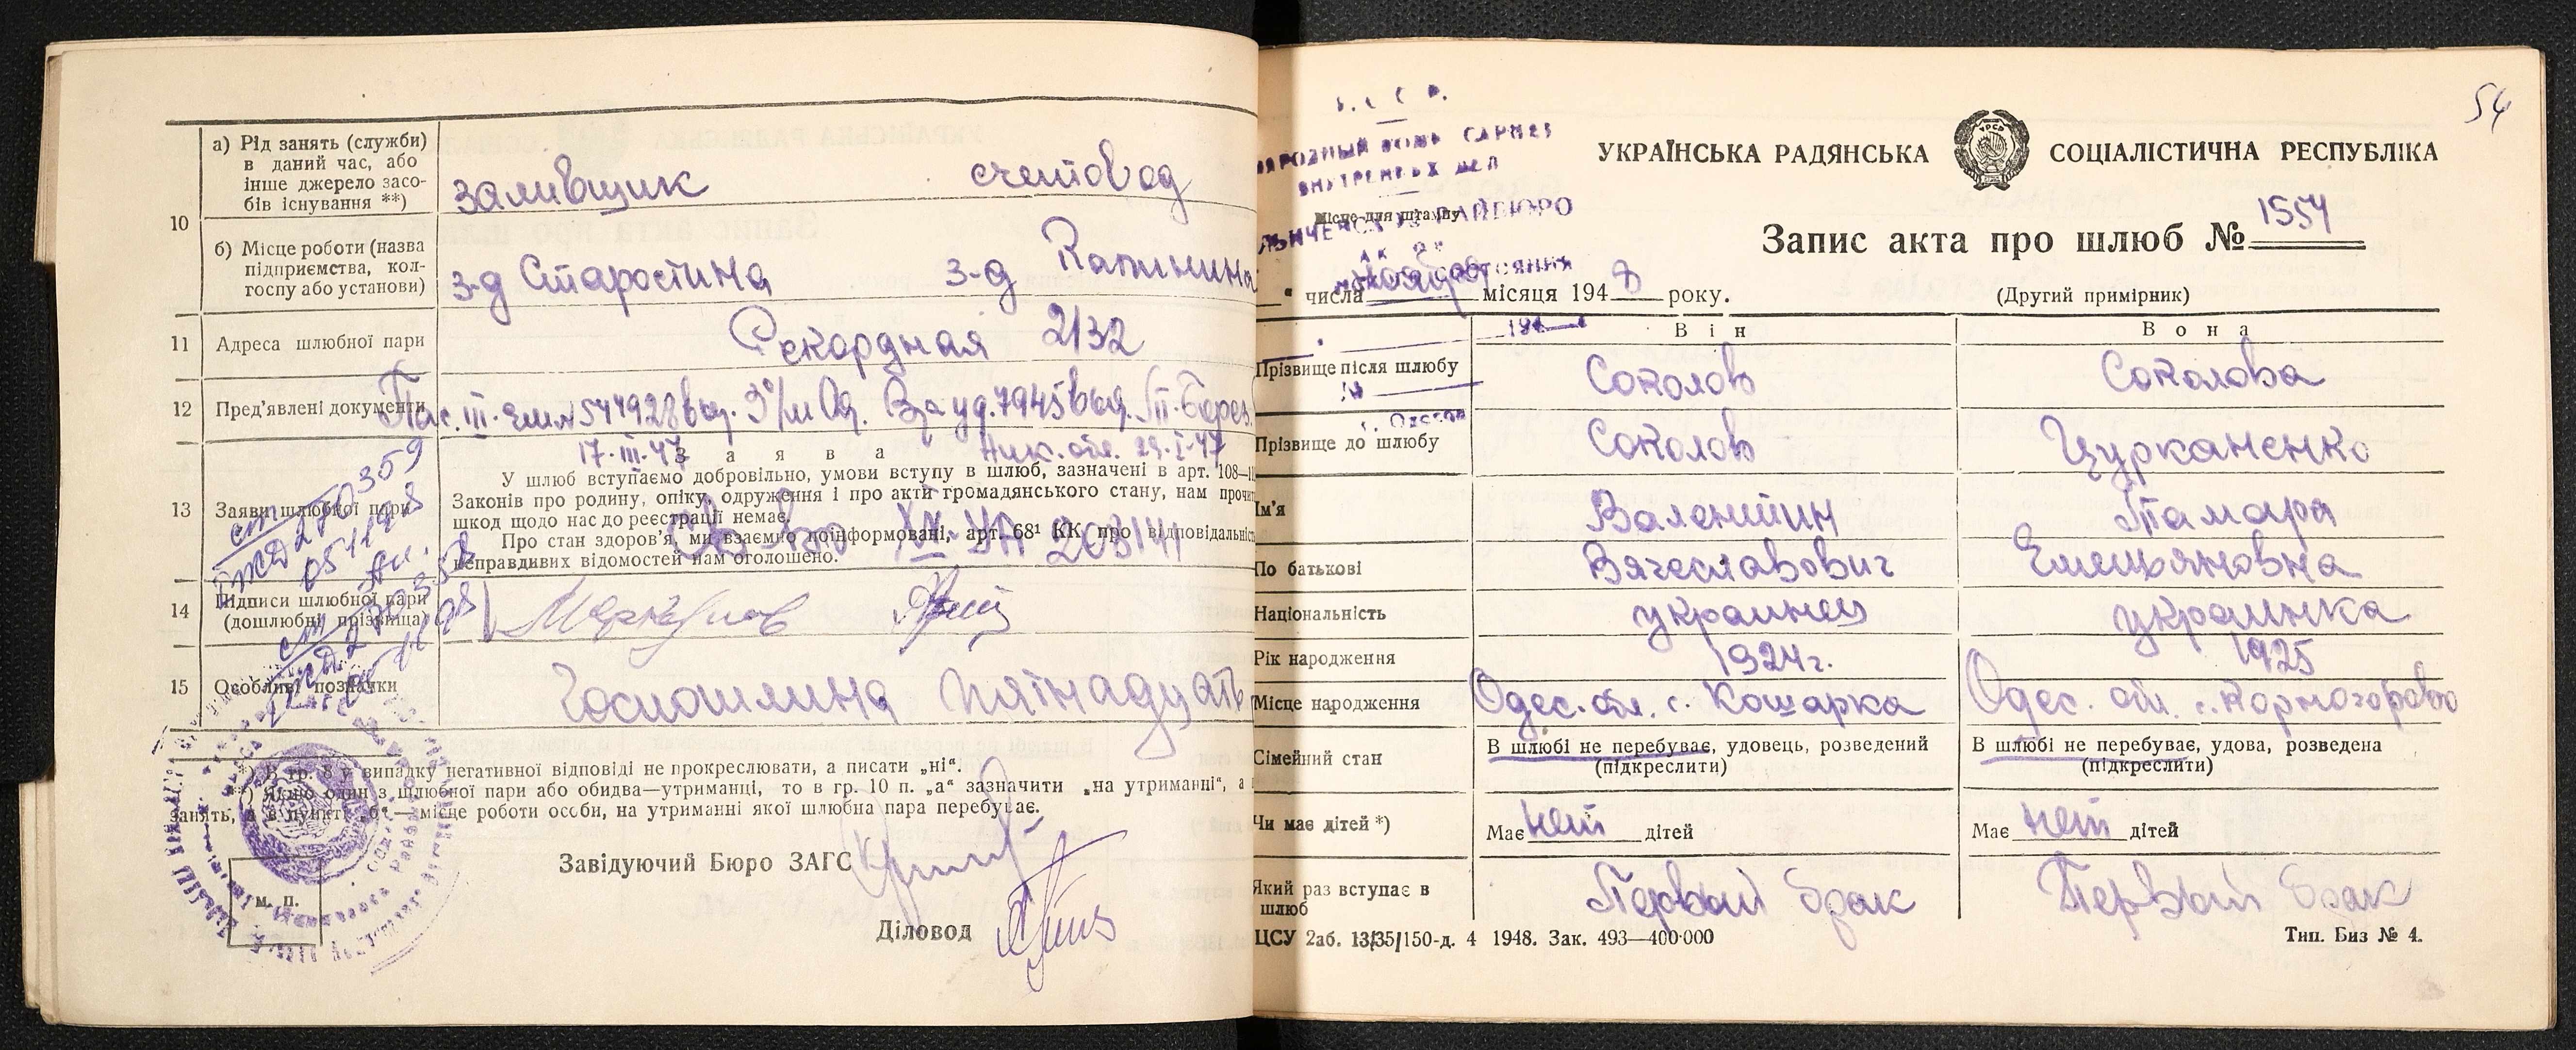 10
а) Рід занять (служби)
в даний час, або
інше джерело засо-
бів існування **)
заливщик счетовод
б) Місце роботи (назва
підприємства, кол-
госпу або установи)
з-д Старостина з-д Калинина
11 Адреса шлюбної пари Рекордная 2132
12 Пред'явлені документи
17-III-47 Ник. обл. 29-I-47
З а я в а
13 Заяви шлюбної пари
У шлюб вступаємо добровільно, умови вступу в шлюб, зазначені в арт. 108—
Законів про родину, опіку, одруження і про акти громадянського стану, нам
шкод щодо нас до реєстрації немає.
Про стан здоров'я, ми взаємно поінформовані, арт. 68¹ КК про
неправдивих відомостей нам оголошено.
14 Підписи шлюбної пари
(дошлюбні прізвища)
15 Особливі позначки Госпошлина пятнадцать
*) В гр. 8 у випадку негативної відповіді не прокреслювати, а писати „ні“.
**) Якщо один з шлюбної пари або обидва—утриманці, то в гр. 10 п. „а“ зазначити „на утриманні“, а
занять, а в пункті „б“— місце роботи особи, на утриманні якої шлюбна пара перебуває.
Завідуючий Бюро ЗАГС
Діловод
м. п.
54
УКРАЇНСЬКА РАДЯНСЬКА СОЦІАЛІСТИЧНА РЕСПУБЛІКА
ВНУТРЕННИХ ДЕЛ
Місце для штампу
Запис акта про шлюб № 1554
числа ноября місяця 1948 року.
(Другий примірник)
Він Вона
Прізвище після шлюбу Соколов Соколова
Прізвище до шлюбу Соколов Цурканенко
Ім'я Валентин Тамара
По батькові Вячеславович Емельяновна
Національність украинец украинка
Рік народження 1924 г. 1925
Місце народження Одес. обл. с. Кошарка Одес. обл.
Сімейний стан
В шлюбі не перебуває, удовець, розведений
(підкреслити)
В шлюбі не перебуває, удова, розведена
(підкреслити)
Чи має дітей *) Має нет дітей Має нет дітей
Який раз вступає в
шлюб
Первый брак Первый брак
ЦСУ 2аб. 13/35/150-д. 4 1948. Зак. 493—400·000
Тип. Биз № 4.